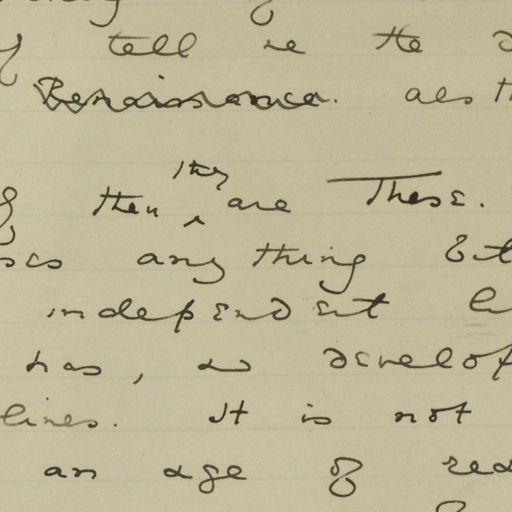 tell me the
Renaissance. aes th
then they are These.
ses anything but
independent li
has, as develop
lines. It is not
an age of rea